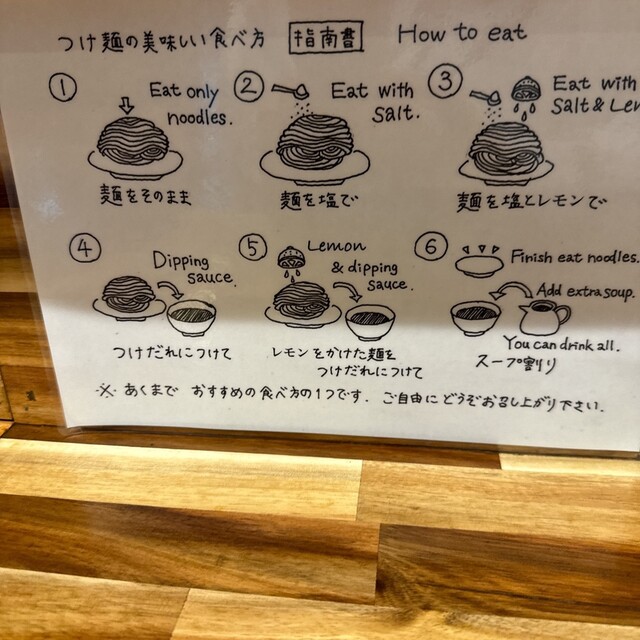 つけ麺の美味しい食べ方 指南書 How to eat
① Eat only noodles.
麺をそのまま
② Eat with Salt.
麺を塩で
③ Eat with Salt & Le
麺を塩とレモンで
④ Dipping sauce.
つけだれにつけて
⑤ Lemon & dipping sauce.
レモンをかけた麺を
つけだれにつけて
⑥ Finish eat noodles.
Add extra soup.
You can drink all.
スープ割り
※ あくまで おすすめの食べ方の1つです. ご自由にどうぞお召し上がり下さい.